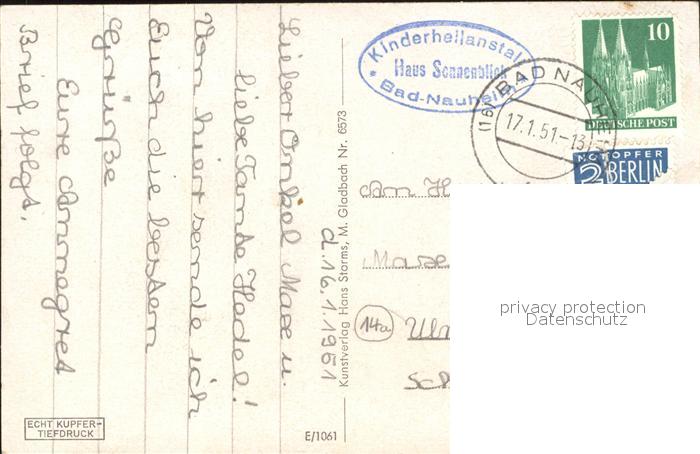 Lieber Onkel Max u.
liebe Tante Hedel!
Von hier sende ich
Euch die besten
Grüße
Eure Annegret
Brief folgt.
d. 16.1.1951
Kunstverlag Hans Storms, M. Gladbach Nr. 6573
ECHT KUPFER-
TIEFDRUCK
E/1061
Kinderheilanstalt
Haus Sonnenblick
Bad-Nauheim
(16) BAD NAUHEIM
17.1.51.-13
10
DEUTSCHE POST
NOTOPFER
2 BERLIN
An H
Max
14a
Ulm
Sch
privacy protection
Datenschutz